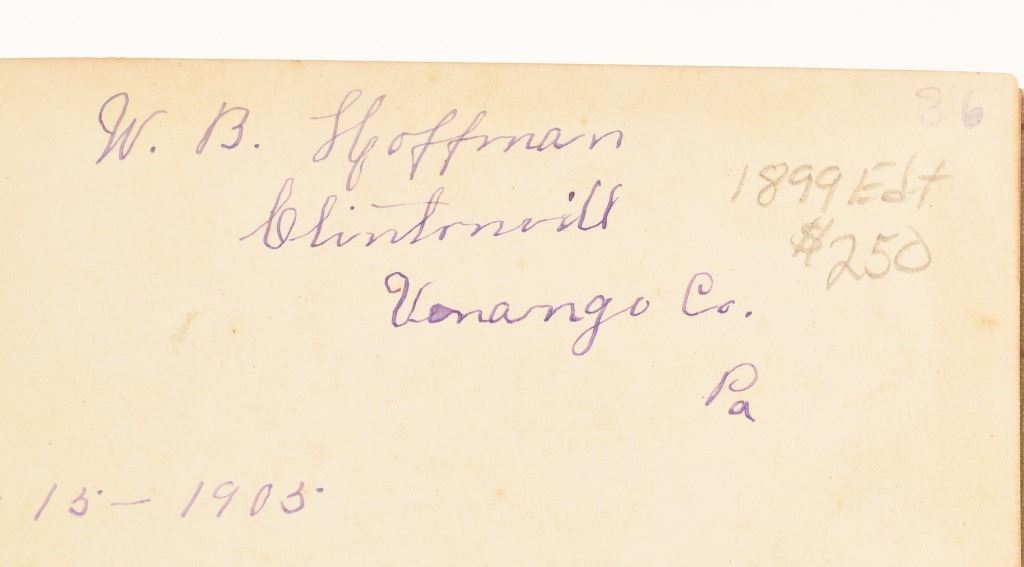 36
W. B. Hoffman
1899 Edt
Clintonvill
$250
Venango Co.
Pa
15 — 1905